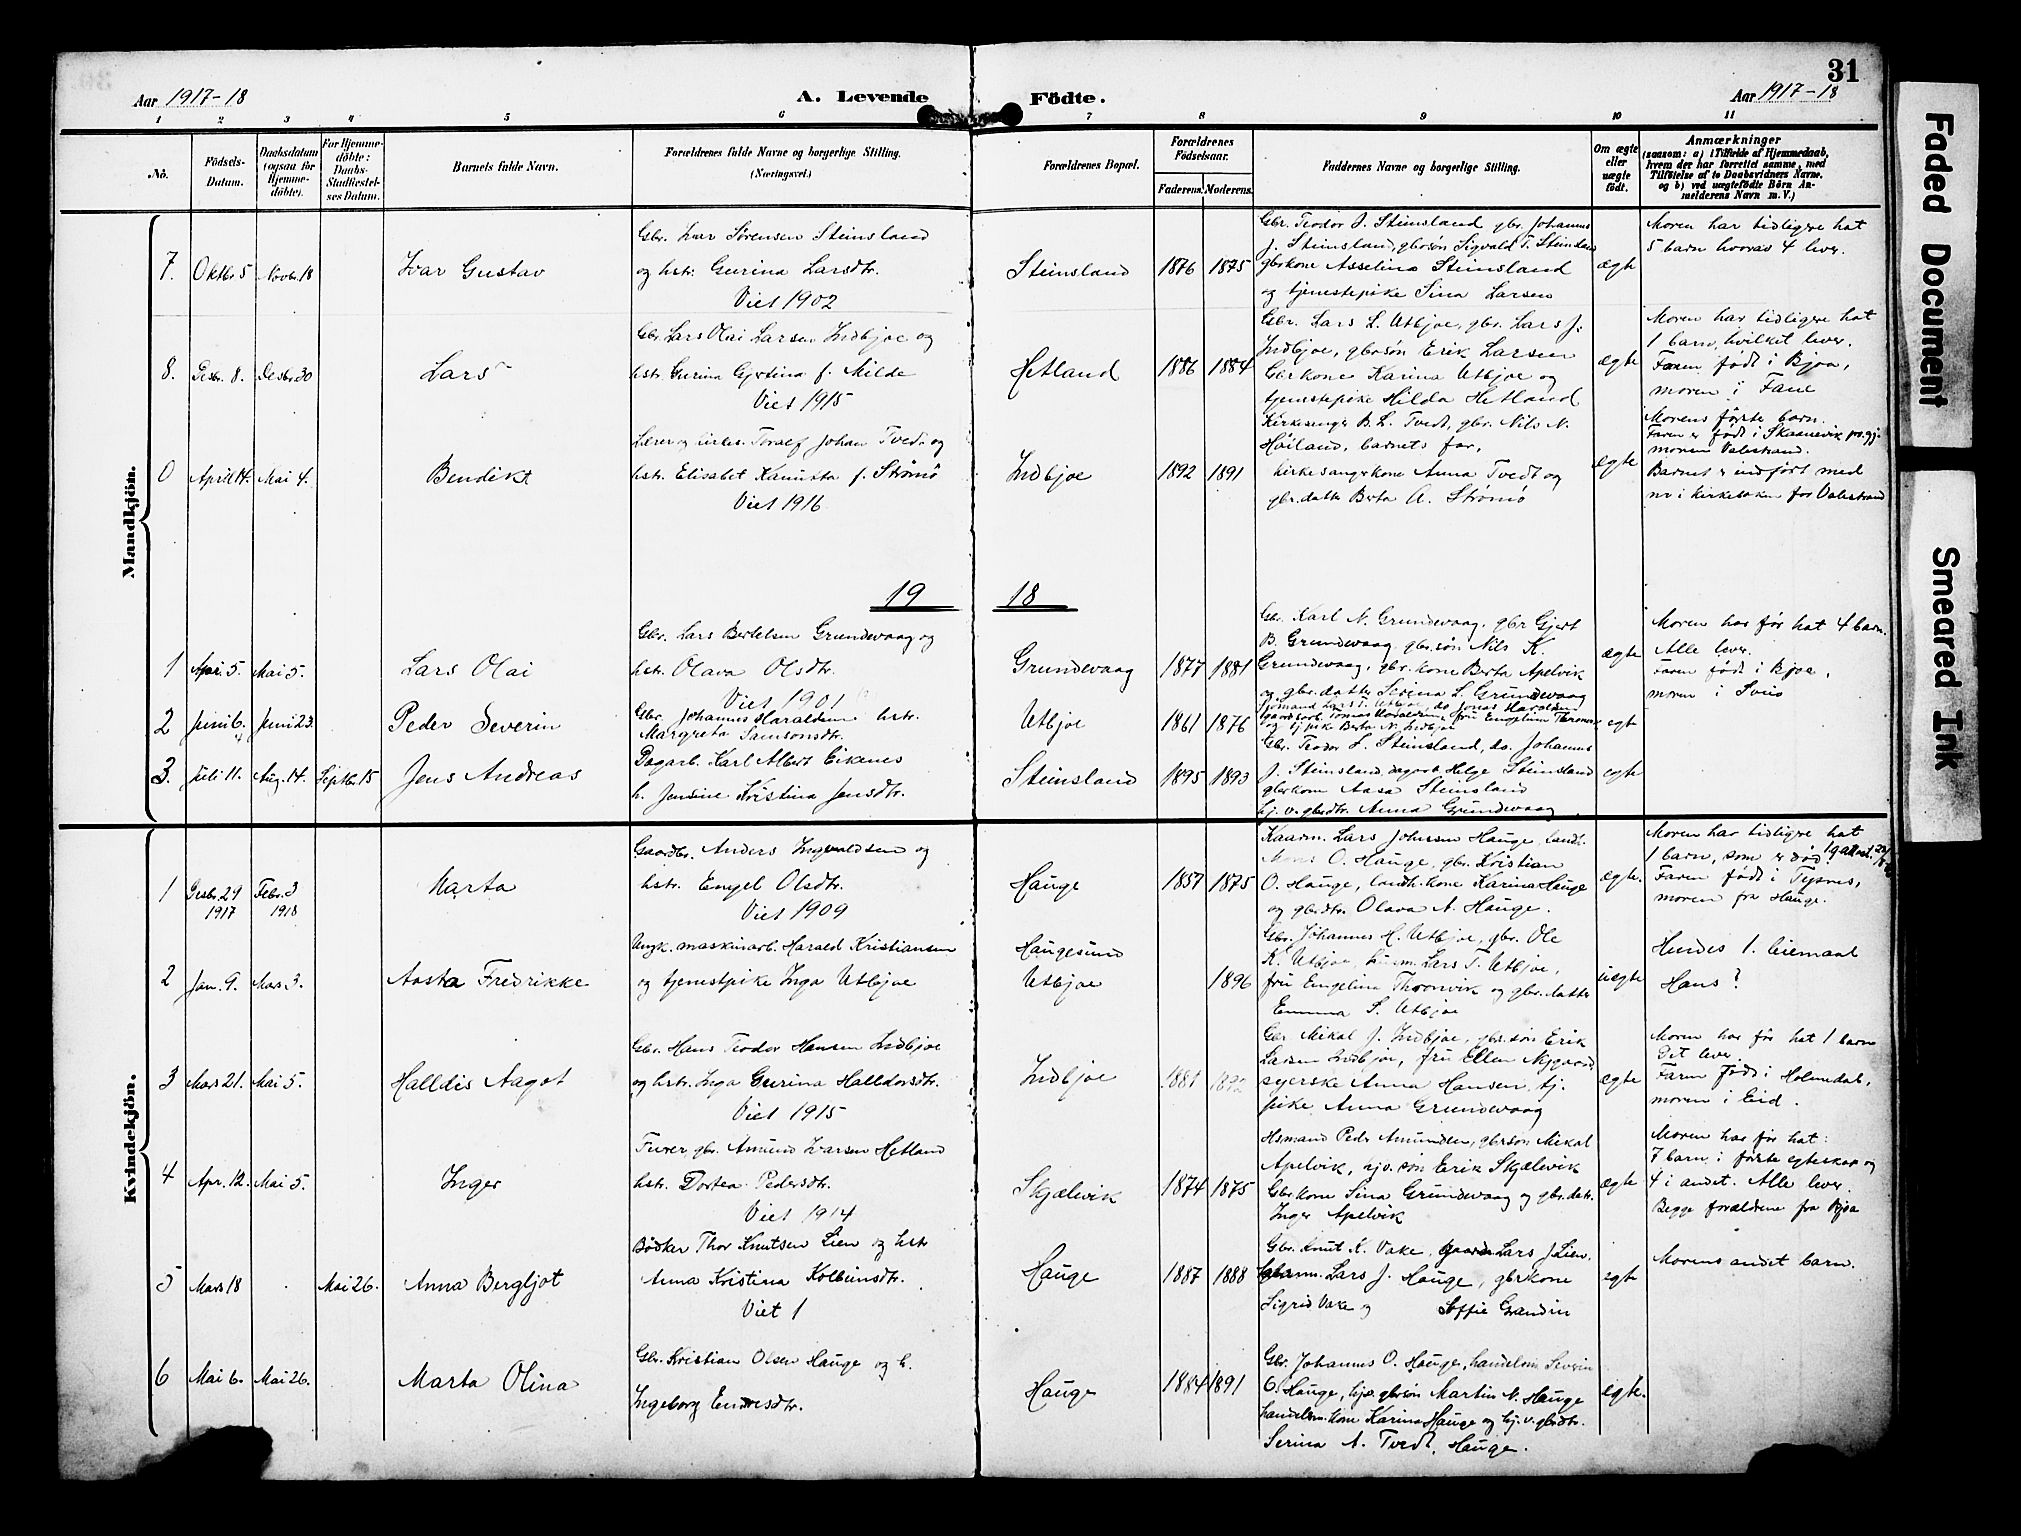 31
Aar 1917-18
A. Levende Födte.
Aar 1917-18
1 2 3 4 5 6 7 8 9 10 11
No.
Födsels-Datum.
Daabsdatum (ogsaa for Hjemmedöbte).
For Hjemmedöbte: Daabs-Stadfæstelses Datum.
Barnets fulde Navn.
Forældrenes fulde Navne og borgerlige Stilling.
(Næringsvei.)
Forældrenes Bopæl.
Forældrenes Födselsaar.
Faderens. Moderens.
Faddernes Navne og borgerlige Stilling.
Om ægte eller uægte födt.
Anmærkninger
(saasom: a) i Tilfælde af Hjemmedaab, hvem der har forrettet samme, med Tilföielse af to Daabsvidners Navne. og b) ved uægtefödte Börn Anmelderens Navn m.V.)
Mandkjön.
7. Oktbr. 5 Novbr. 18
Ivar Gustav
Gbr. Ivar Sørensen Steinsland
og hstr. Gurina Larsdtr.
Viet 1902
Steinsland 1876 1875
Gbr. Teodor J. Steinsland gbr. Johannes
J. Steinsland, gbrsøn Sigvald T. Steinsland
gbrkone Asselina Steinsland
og tjenestepike Sina Larsen
ægte
Moren har tidligere hat
5 barn hvorav 4 lever.
8. Desbr. 8. Desbr. 30
Lars
Gbr. Lars Olai Larsen Indbjoe og
hstr. Gurina Gjertina f. Milde
Viet 1915
Hetland 1886 1884
Gbr. Lars L. Utbjoe, gbr. Lars J.
Indbjoe, gbrsøn Erik Larsen
Gbrkone Karina Utbjoe og
tjenestepike Hilda Hetland
ægte
Moren har tidligere hat
1 barn, hvilket lever.
Faren født i Bjoa,
moren i Fane
0 April 14. Mai 4.
Bendikt
Lærer og kirkes. Toralf Johan Tvedt og
hstr. Elisabet f. Strømø
Viet 1916
Indbjoe 1892 1891
Kirkesanger B. L. Tvedt, gbr. Nils N.
Høiland, barnets far,
kirkesangerkone Anna Tvedt og
gbr. datter Berta A. Strømø
ægte
Morens første barn.
Faren er født i Skaanevik
moren Valestrand.
Barnet er indført med
nr i kirkeboken for Valestrand
1918
1 Apr. 5. Mai 5.
Lars Olai
Gbr. Lars Bertelsen Grundevaag og
hstr. Olava Olsdtr.
Viet 1901
Grundevaag 1877 1881
Gbr. Karl N. Grundevaag, gbr Gjert
B. Grundevaag gbrsøn Nils K.
Grundevaag, gbr. kone Berta Apelvik
og gbr. datter Serina L. Grundevaag
ægte
Moren har før hat 4 barn.
Alle lever.
Faren født i Bjoe,
moren i Sveio
2 Juni 6. Juni 23.
Peder Severin
Gbr. Johannes Haraldsen hstr.
Margreta Samsonsdtr.
Utbjoe 1861 1876
Sjømand Lars T. Utbjoe, do Jonas Haraldsen
Tomas Haraldsen, fru Engelina Thronsvik
og tj. pike Berta N. Indbjoe
egte
3. Juli 11. Aug. 14. Septbr. 15
Jens Andreas
Dagarb. Karl Albert Eiknes
h. Jensine Kristina Jensdtr.
Steinsland 1895 1893
Gbr. Teodor J. Steinsland, do. Johannes
J. Steinsland, dagarb. Helge Steinsland
gbrkone Aasa Steinsland
hj. v. gbrdtr. Anna Grundevaag
egte
Kvindekjön.
1 Desbr. 29 1917 Febr. 3 1918
Marta
Gaardbr. Anders Ingvaldsen og
hstr. Engel Olsdtr.
Viet 1909
Hauge 1857 1875
Kaarm. Lars Johnsen Hauge, landh.
Mons O. Hauge, gbr. Kristian
O. Hauge, landh. kone Karina Hauge
og gbrdtr. Olava A. Hauge.
ægte.
Moren har tidligere hat
1 barn, som er død.
Faren født i Tysnes,
moren fra Hauge.
2 Jan. 9. Mars 3.
Aasta Fredrikke
Ungk. maskinarb. Harald Kristiansen
og tjenestpike Inga Utbjoe
Haugesund
Utbjoe
1896
Gbr. Johannes H. Utbjoe, gbr. Ole
K. Utbjoe, Lars T. Utbjoe,
fru Engelina Thronsvik og gbr. datter
Emma S. Utbjoe
uegte
Hendes 1. leiemaal
Hans ?
3 Mars 21. Mai 5.
Halldis Aagot
Gbr. Hans Teodor Hansen Indbjoe
og hstr. Inga Gurina Halldorsdtr.
Viet 1915
Indbjoe 1881 1892
Gbr Mikal J. Indbjoe, gbr. søn Erik
Larsen Indbjoe, fru Ellen Nygaard
syerske Anna Hansen tj.
pike Anna Grundevaag
ægte
Moren har før hat 1 barn
Det lever.
Faren født i Holmedal,
moren i Eid.
4 Apr. 12. Mai 5.
Inger
Furer, gbr. Amund Ivarsen Hetland
hstr. Dortea Pedersdtr.
Viet 1914
Skjælevik 1874 1875
Hsmand Peder Amundsen, gbrsøn Mikal
Apelvik, hjv. søn Erik Skjælevik
Gbrkone Sina Grundevaag og gbr. datr.
Inger Apelvik
ægte
Moren har før hat:
7 barn i første egteskap og
4 i andet. Alle lever.
Begge forældrene fra Bjoa
5 Mars 18 Mai 26.
Anna Bergljot
Bødker Thor Knutsen Lien og hstr
Anna Kristina Kolbeinsdtr.
Viet 1
Hauge 1887 1888
Gbr. Knut K. Vake, Lars J. Lien,
Lars J. Hauge, gbrkone
Sigrid Vake og Soffie Grandin
egte
Morens andet barn.
6 Mai 6. Mai 26.
Marta Olina
Gbr. Kristian Olsen Hauge og h.
Ingeborg Endresdtr.
Hauge 1884 1891
Gbr. Johannes O. Hauge, handelsm. Severin
O. Hauge, hjv. gbrsøn Martin N. Hauge
handelsm. kone Karina Hauge og hj. v. gbrdtr.
Serina A. Tvedt, Hauge.
egte.
Faded Document
Smeared Ink